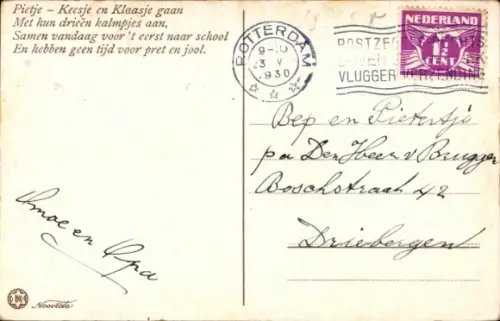 Pietje – Keesje en Klaasje gaan
Met kun drieën kalmpjes aan,
Samen vandaag voor 't eerst naar school
En hebben geen tijd voor pret en jool.
ROTTERDAM
9-10
23 V
1930
POSTZEG
VLUGGER VERZENDING
NEDERLAND
1½
CENT
Bep en Pietertje
p/a Den Heer v Brugger
Boschstraat 42
Driebergen
Omoe en Opa
Novolito